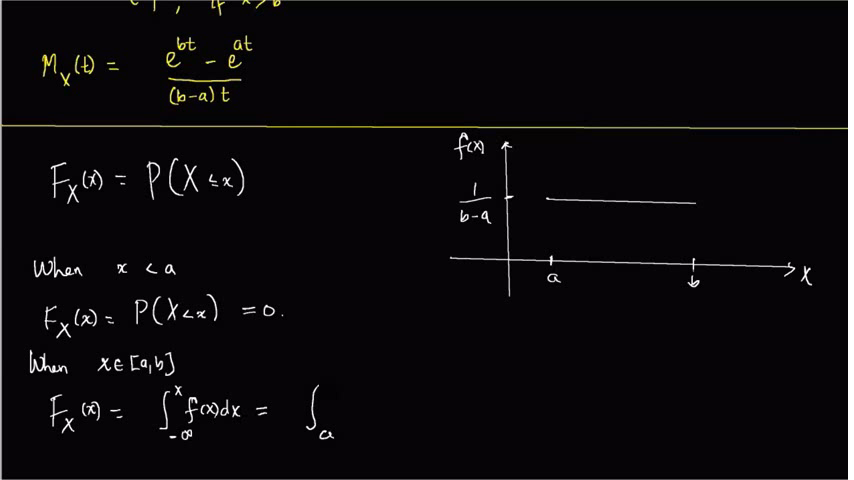 1, if x > b
M_X(t) = (e^{bt} - e^{at}) / ((b-a)t)
F_X(x) = P(X ≤ x)
When x < a
F_X(x) = P(X < x) = 0.
When x ∈ [a,b]
F_X(x) = ∫_{-∞}^{x} f(x)dx = ∫_a
f(x)
1/(b-a)
a
b
X